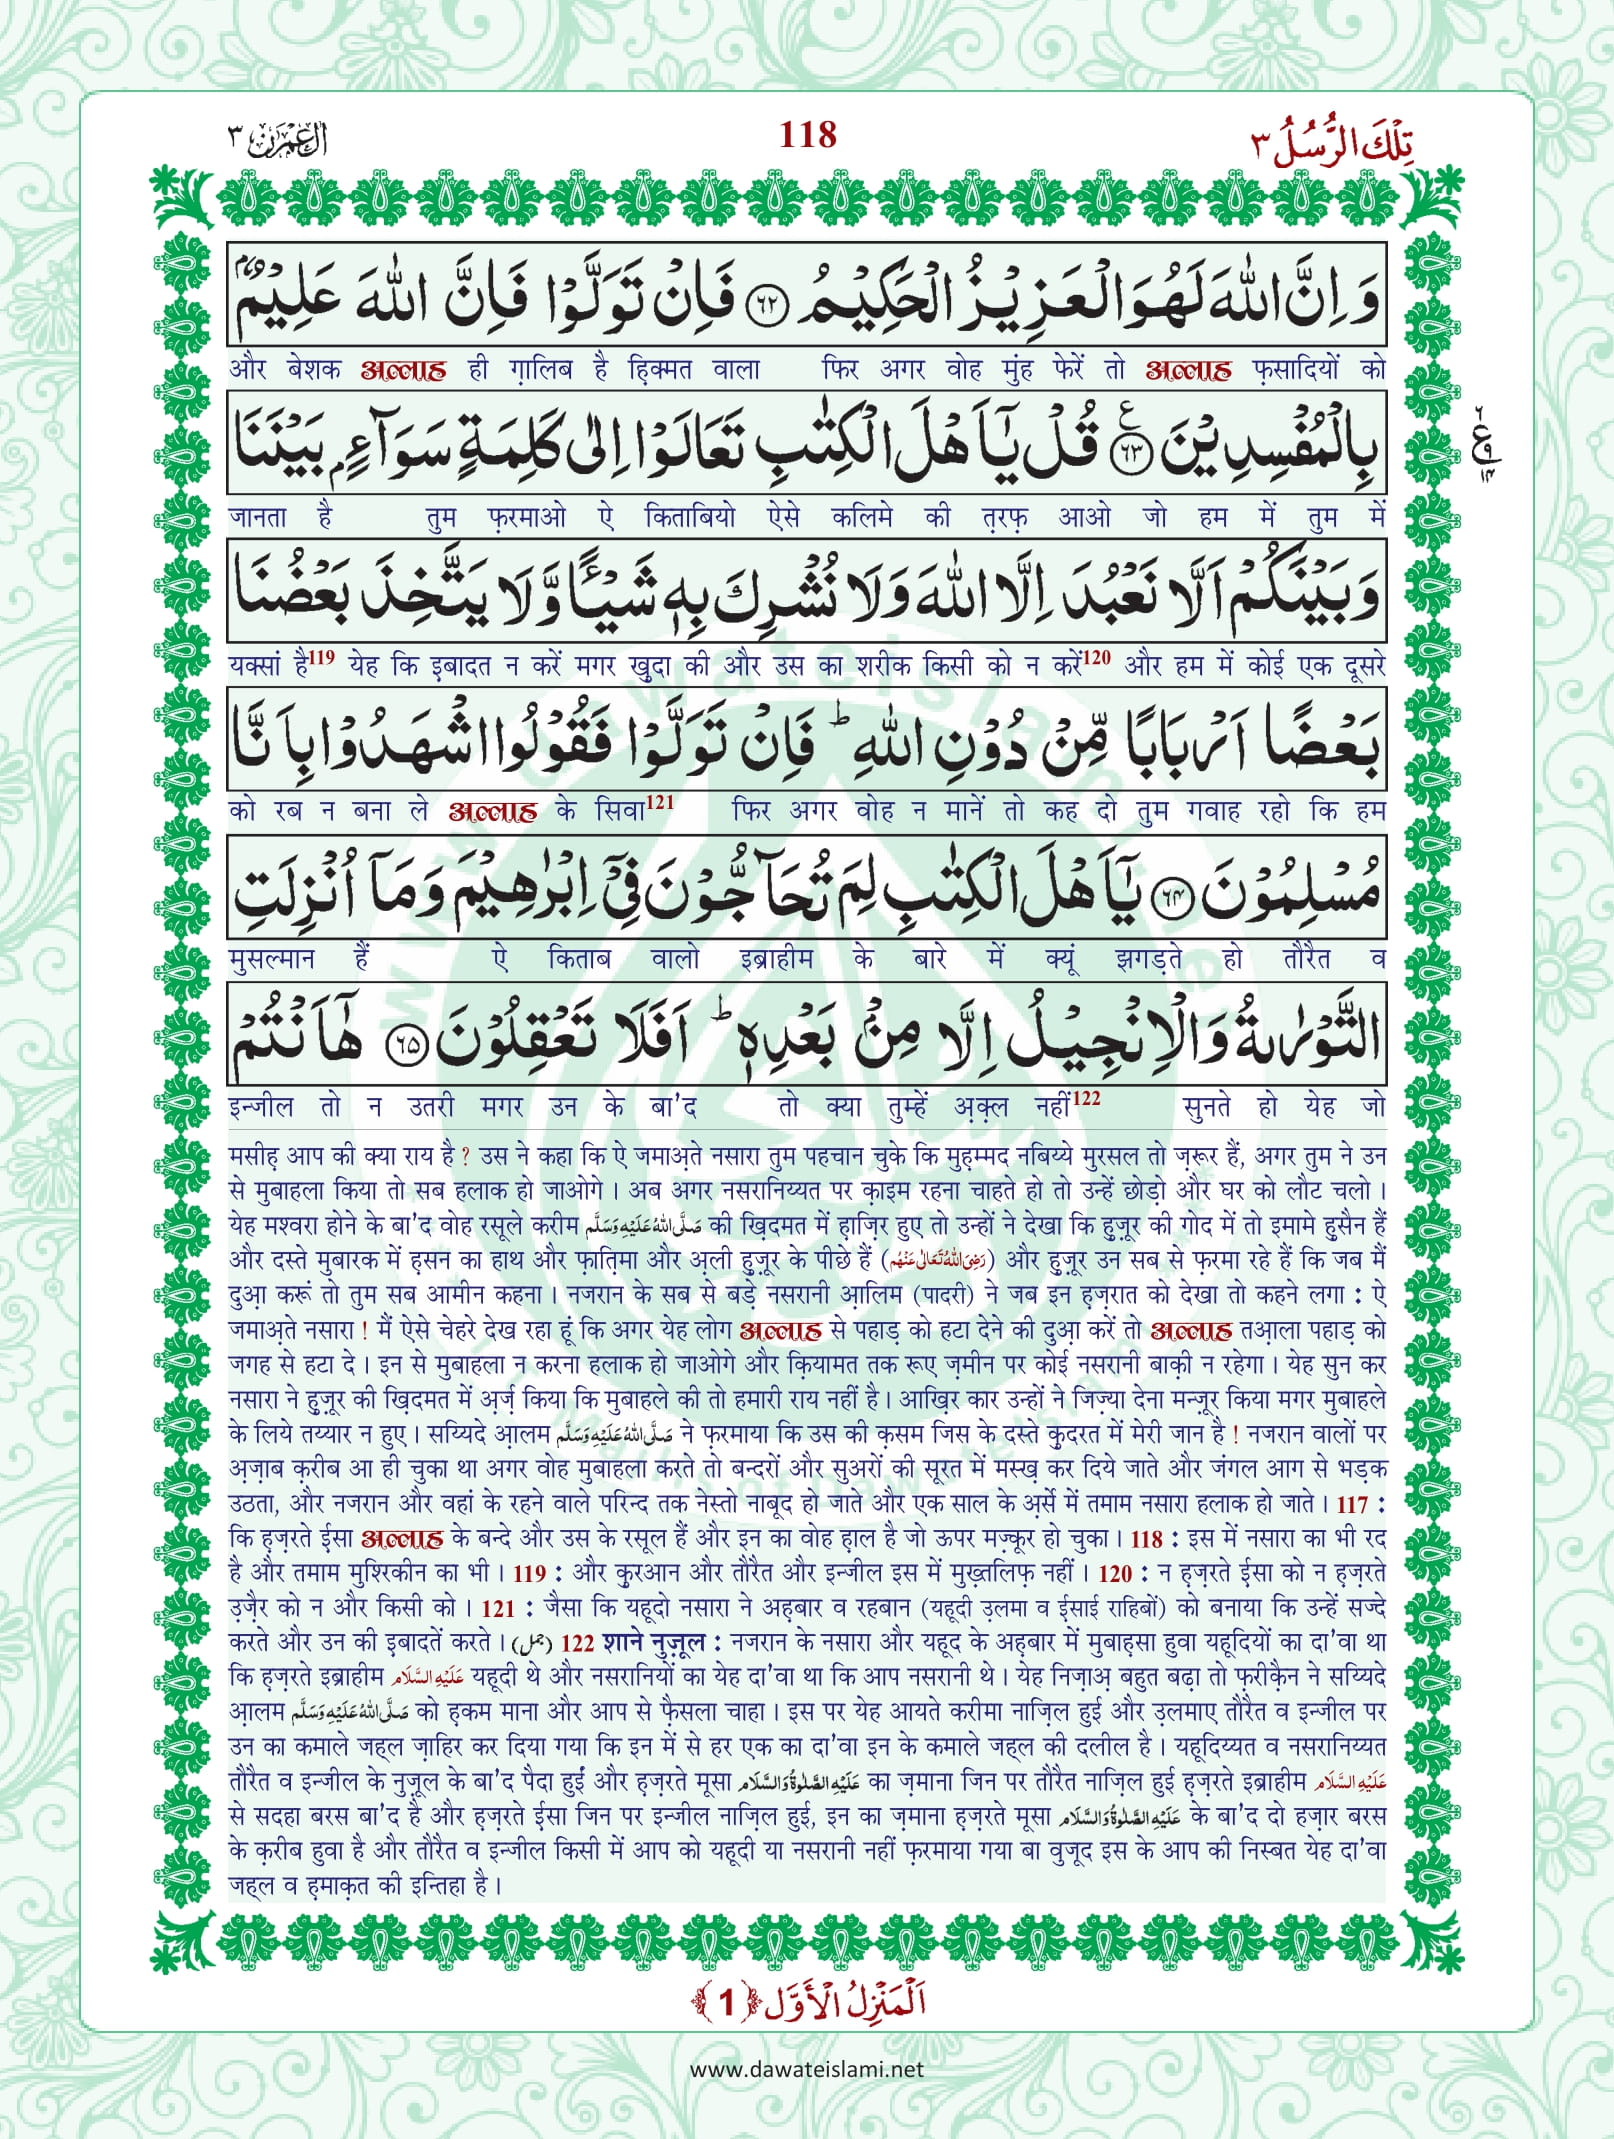 اٰل عمرٰن ٣
118
تِلْكَ الرُّسُلُ ٣
وَ اِنَّ اللّٰهَ لَهُوَ الْعَزِیْزُ الْحَكِیْمُ ﴿۶۲﴾ فَاِنْ تَوَلَّوْا فَاِنَّ اللّٰهَ عَلِیْمٌۢ
और बेशक अल्लाह ही ग़ालिब है ह़िक्मत वाला फिर अगर वोह मुंह फेरें तो अल्लाह फ़सादियों को
بِالْمُفْسِدِیْنَ ﴿۶۳﴾ ع قُلْ یٰۤاَهْلَ الْكِتٰبِ تَعَالَوْا اِلٰى كَلِمَةٍ سَوَآءٍۭ بَیْنَنَا
٦
ع
٩
١٤
जानता है तुम फ़रमाओ ऐ किताबियो ऐसे कलिमे की त़रफ़ आओ जो हम में तुम में
وَ بَیْنَكُمْ اَلَّا نَعْبُدَ اِلَّا اللّٰهَ وَ لَا نُشْرِكَ بِهٖ شَیْــٴًـا وَّ لَا یَتَّخِذَ بَعْضُنَا
यक्सां है119 येह कि इबादत न करें मगर खुदा की और उस का शरीक किसी को न करें120 और हम में कोई एक दूसरे
بَعْضًا اَرْبَابًا مِّنْ دُوْنِ اللّٰهِؕ فَاِنْ تَوَلَّوْا فَقُوْلُوا اشْهَدُوْا بِاَنَّا
को रब न बना ले अल्लाह के सिवा121 फिर अगर वोह न मानें तो कह दो तुम गवाह रहो कि हम
مُسْلِمُوْنَ ﴿۶۴﴾ یٰۤاَهْلَ الْكِتٰبِ لِمَ تُحَآجُّوْنَ فِیْۤ اِبْرٰهِیْمَ وَ مَاۤ اُنْزِلَتِ
मुसल्मान हैं ऐ किताब वालो इब्राहीम के बारे में क्यूं झगड़ते हो तौरैत व
التَّوْرٰىةُ وَ الْاِنْجِیْلُ اِلَّا مِنْۢ بَعْدِهٖؕ اَفَلَا تَعْقِلُوْنَ ﴿۶۵﴾ هٰۤاَنْتُمْ
इन्जील तो न उतरी मगर उन के बा'द तो क्या तुम्हें अ़क़्ल नहीं122 सुनते हो येह जो
मसीह़ आप की क्या राय है ? उस ने कहा कि ऐ जमाअ़ते नसारा तुम पहचान चुके कि मुह़म्मद नबिय्ये मुरसल तो ज़रूर हैं, अगर तुम ने उन
से मुबाहला किया तो सब हलाक हो जाओगे । अब अगर नसरानिय्यत पर क़ाइम रहना चाहते हो तो उन्हें छोड़ो और घर को लौट चलो ।
येह मश्वरा होने के बा'द वोह रसूले करीम صَلَّى اللّٰهُ عَلَيْهِ وَسَلَّم की ख़िदमत में ह़ाज़िर हुए तो उन्हों ने देखा कि हुज़ूर की गोद में तो इमामे हुसैन हैं
और दस्ते मुबारक में ह़सन का हाथ और फ़ात़िमा और अ़ली हुज़ूर के पीछे हैं (رَضِىَ اللّٰهُ تَعَالٰى عَنْهُم) और हुज़ूर उन सब से फ़रमा रहे हैं कि जब मैं
दुआ़ करूं तो तुम सब आमीन कहना । नजरान के सब से बड़े नसरानी आ़लिम (पादरी) ने जब इन ह़ज़रात को देखा तो कहने लगा : ऐ
जमाअ़ते नसारा ! मैं ऐसे चेहरे देख रहा हूं कि अगर येह लोग अल्लाह से पहाड़ को हटा देने की दुआ़ करें तो अल्लाह तआ़ला पहाड़ को
जगह से हटा दे । इन से मुबाहला न करना हलाक हो जाओगे और क़ियामत तक रूए ज़मीन पर कोई नसरानी बाक़ी न रहेगा । येह सुन कर
नसारा ने हुज़ूर की ख़िदमत में अ़र्ज़ किया कि मुबाहले की तो हमारी राय नहीं है । आख़िर कार उन्हों ने जिज़्या देना मन्ज़ूर किया मगर मुबाहले
के लिये तय्यार न हुए । सय्यिदे आ़लम صَلَّى اللّٰهُ عَلَيْهِ وَسَلَّم ने फ़रमाया कि उस की क़सम जिस के दस्ते कुदरत में मेरी जान है ! नजरान वालों पर
अ़ज़ाब क़रीब आ ही चुका था अगर वोह मुबाहला करते तो बन्दरों और सुअरों की सूरत में मस्ख़ कर दिये जाते और जंगल आग से भड़क
उठता, और नजरान और वहां के रहने वाले परिन्द तक नेस्तो नाबूद हो जाते और एक साल के अ़र्से में तमाम नसारा हलाक हो जाते । 117 :
कि ह़ज़रते ईसा अल्लाह के बन्दे और उस के रसूल हैं और इन का वोह ह़ाल है जो ऊपर मज़्कूर हो चुका । 118 : इस में नसारा का भी रद
है और तमाम मुश्रिकीन का भी । 119 : और कुरआन और तौरैत और इन्जील इस में मुख़्तलिफ़ नहीं । 120 : न ह़ज़रते ईसा को न ह़ज़रते
उ़ज़ैर को न और किसी को । 121 : जैसा कि यहूदो नसारा ने अह़बार व रहबान (यहूदी उ़लमा व ईसाई राहिबों) को बनाया कि उन्हें सज्दे
करते और उन की इबादतें करते । (جمل) 122 शाने नुज़ूल : नजरान के नसारा और यहूद के अह़बार में मुबाह़सा हुवा यहूदियों का दा'वा था
कि ह़ज़रते इब्राहीम عَلَيْهِ السَّلَام यहूदी थे और नसरानियों का येह दा'वा था कि आप नसरानी थे । येह निज़ाअ़ बहुत बढ़ा तो फ़रीक़ैन ने सय्यिदे
आ़लम صَلَّى اللّٰهُ عَلَيْهِ وَسَلَّم को ह़कम माना और आप से फ़ैसला चाहा । इस पर येह आयते करीमा नाज़िल हुई और उ़लमाए तौरैत व इन्जील पर
उन का कमाले जहल ज़ाहिर कर दिया गया कि इन में से हर एक का दा'वा इन के कमाले जहल की दलील है । यहूदिय्यत व नसरानिय्यत
तौरैत व इन्जील के नुज़ूल के बा'द पैदा हुईं और ह़ज़रते मूसा عَلَيْهِ الصَّلٰوةُ وَالسَّلَام का ज़माना जिन पर तौरैत नाज़िल हुई ह़ज़रते इब्राहीम عَلَيْهِ السَّلَام
से सदहा बरस बा'द है और ह़ज़रते ईसा जिन पर इन्जील नाज़िल हुई, इन का ज़माना ह़ज़रते मूसा عَلَيْهِ الصَّلٰوةُ وَالسَّلَام के बा'द दो हज़ार बरस
के क़रीब हुवा है और तौरैत व इन्जील किसी में आप को यहूदी या नसरानी नहीं फ़रमाया गया बा वुजूद इस के आप की निस्बत येह दा'वा
जहल व ह़माक़त की इन्तिहा है ।
اَلْمَنْزِلُ الْاَوَّل ﴿1﴾
www.dawateislami.net